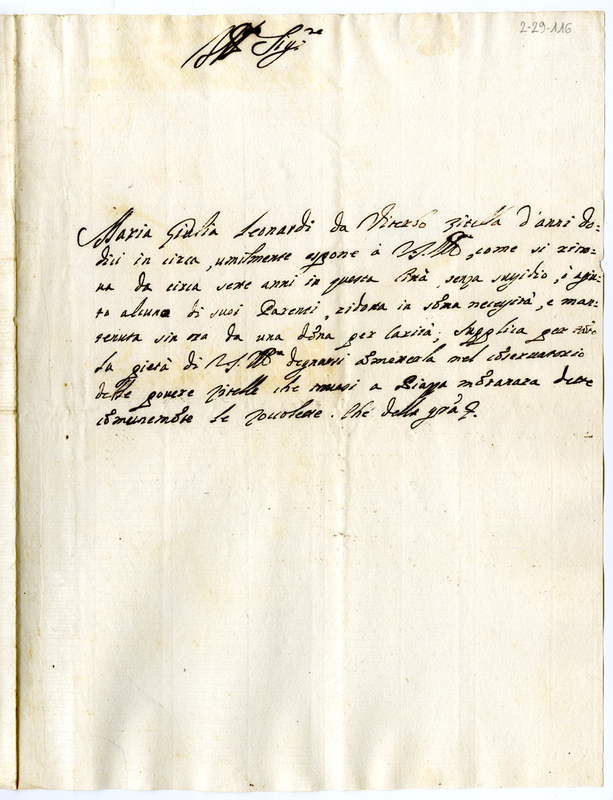 2-29-116
Ill.mo Sig.re
Maria Giulia Leonardi da Viterbo zitella d'anni do=
dici in circa, umilmente espone à V.S. Ill.ma, come si ritro=
va da circa sette anni in questa Città, senza sussidio, ò aju=
to alcuno di suoi Parenti, ridotta in soma necessità, e man=
tenuta sin ora da una dona per carità; supplica per tanto
la pietà di V.S. Ill.ma degnarsi comeneterla nel coservatorio
delle povere zitelle che trovasi a Piazza motanara dette
comunemete le zoccolette. Che della gra &.